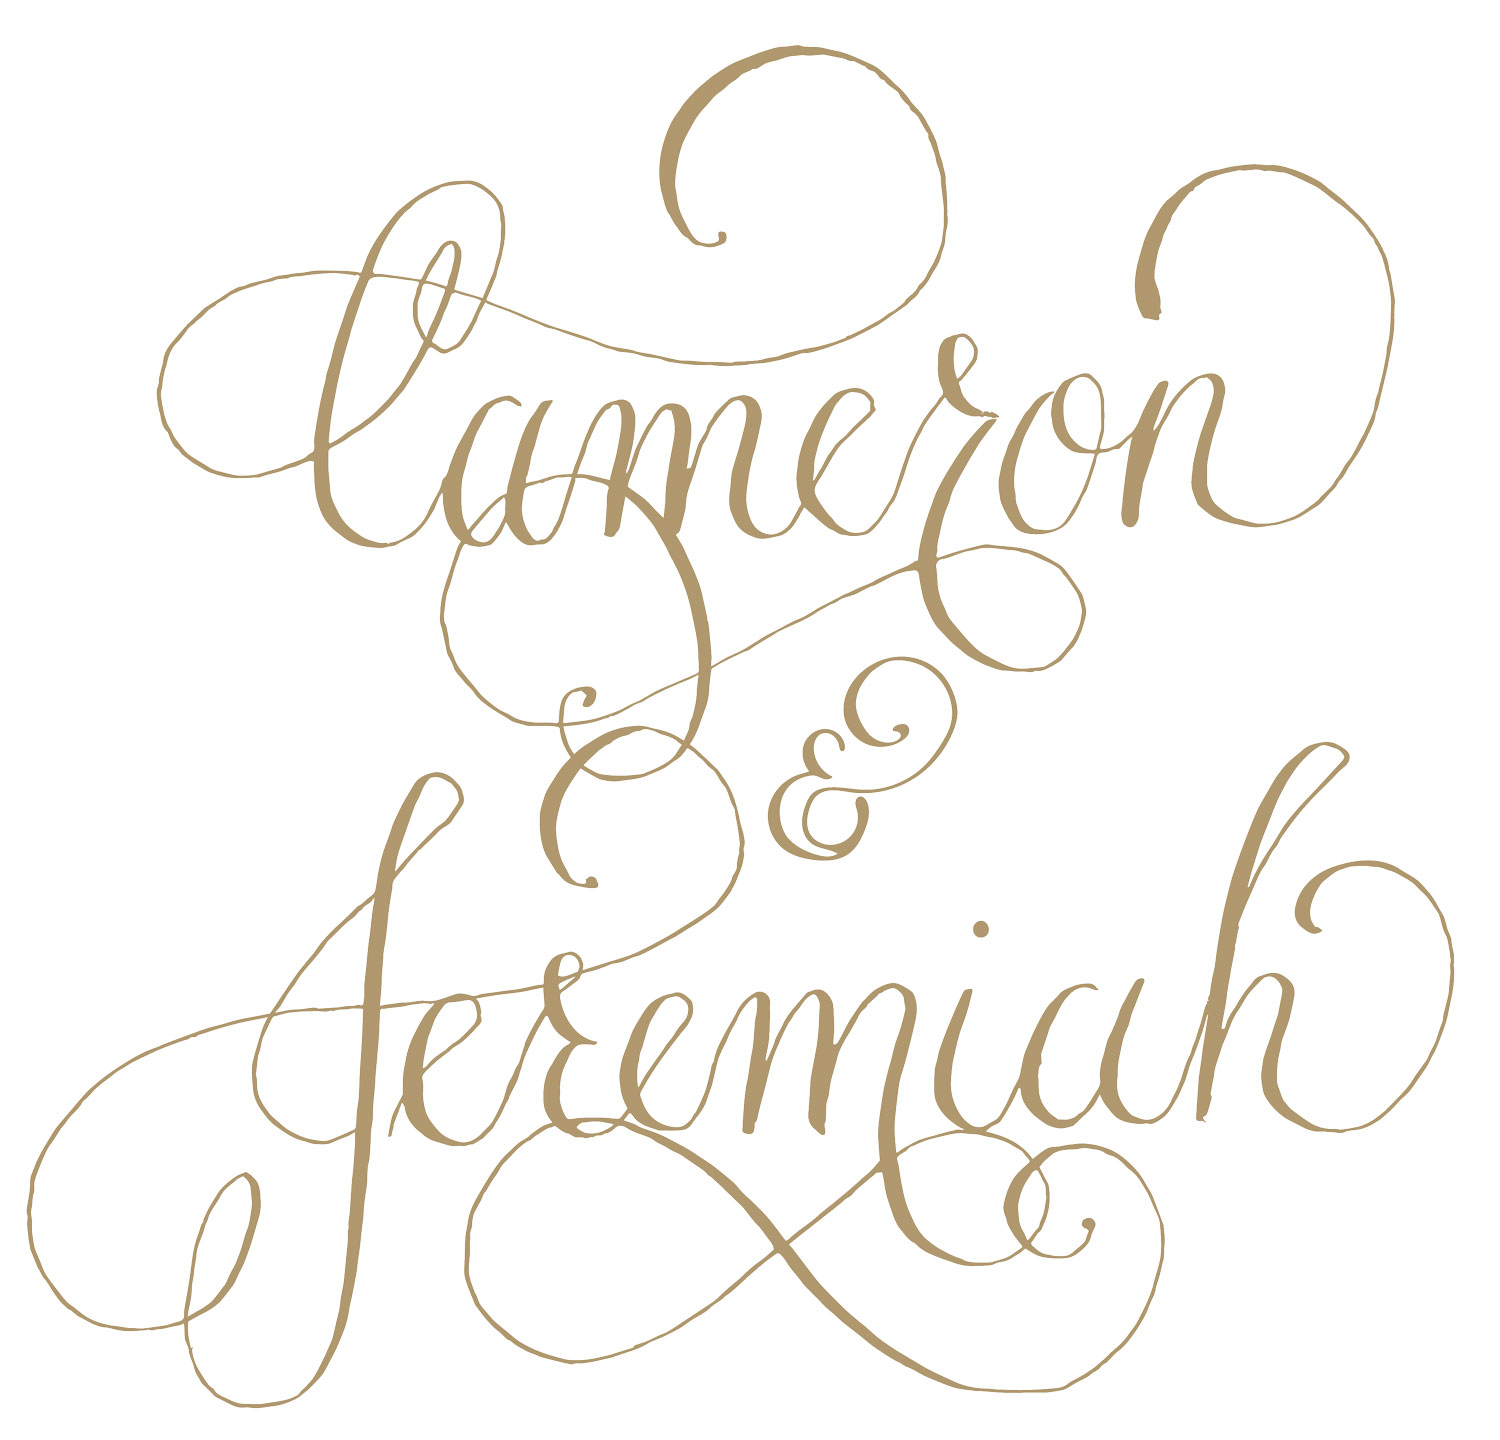 Cameron
&
Jeremiah